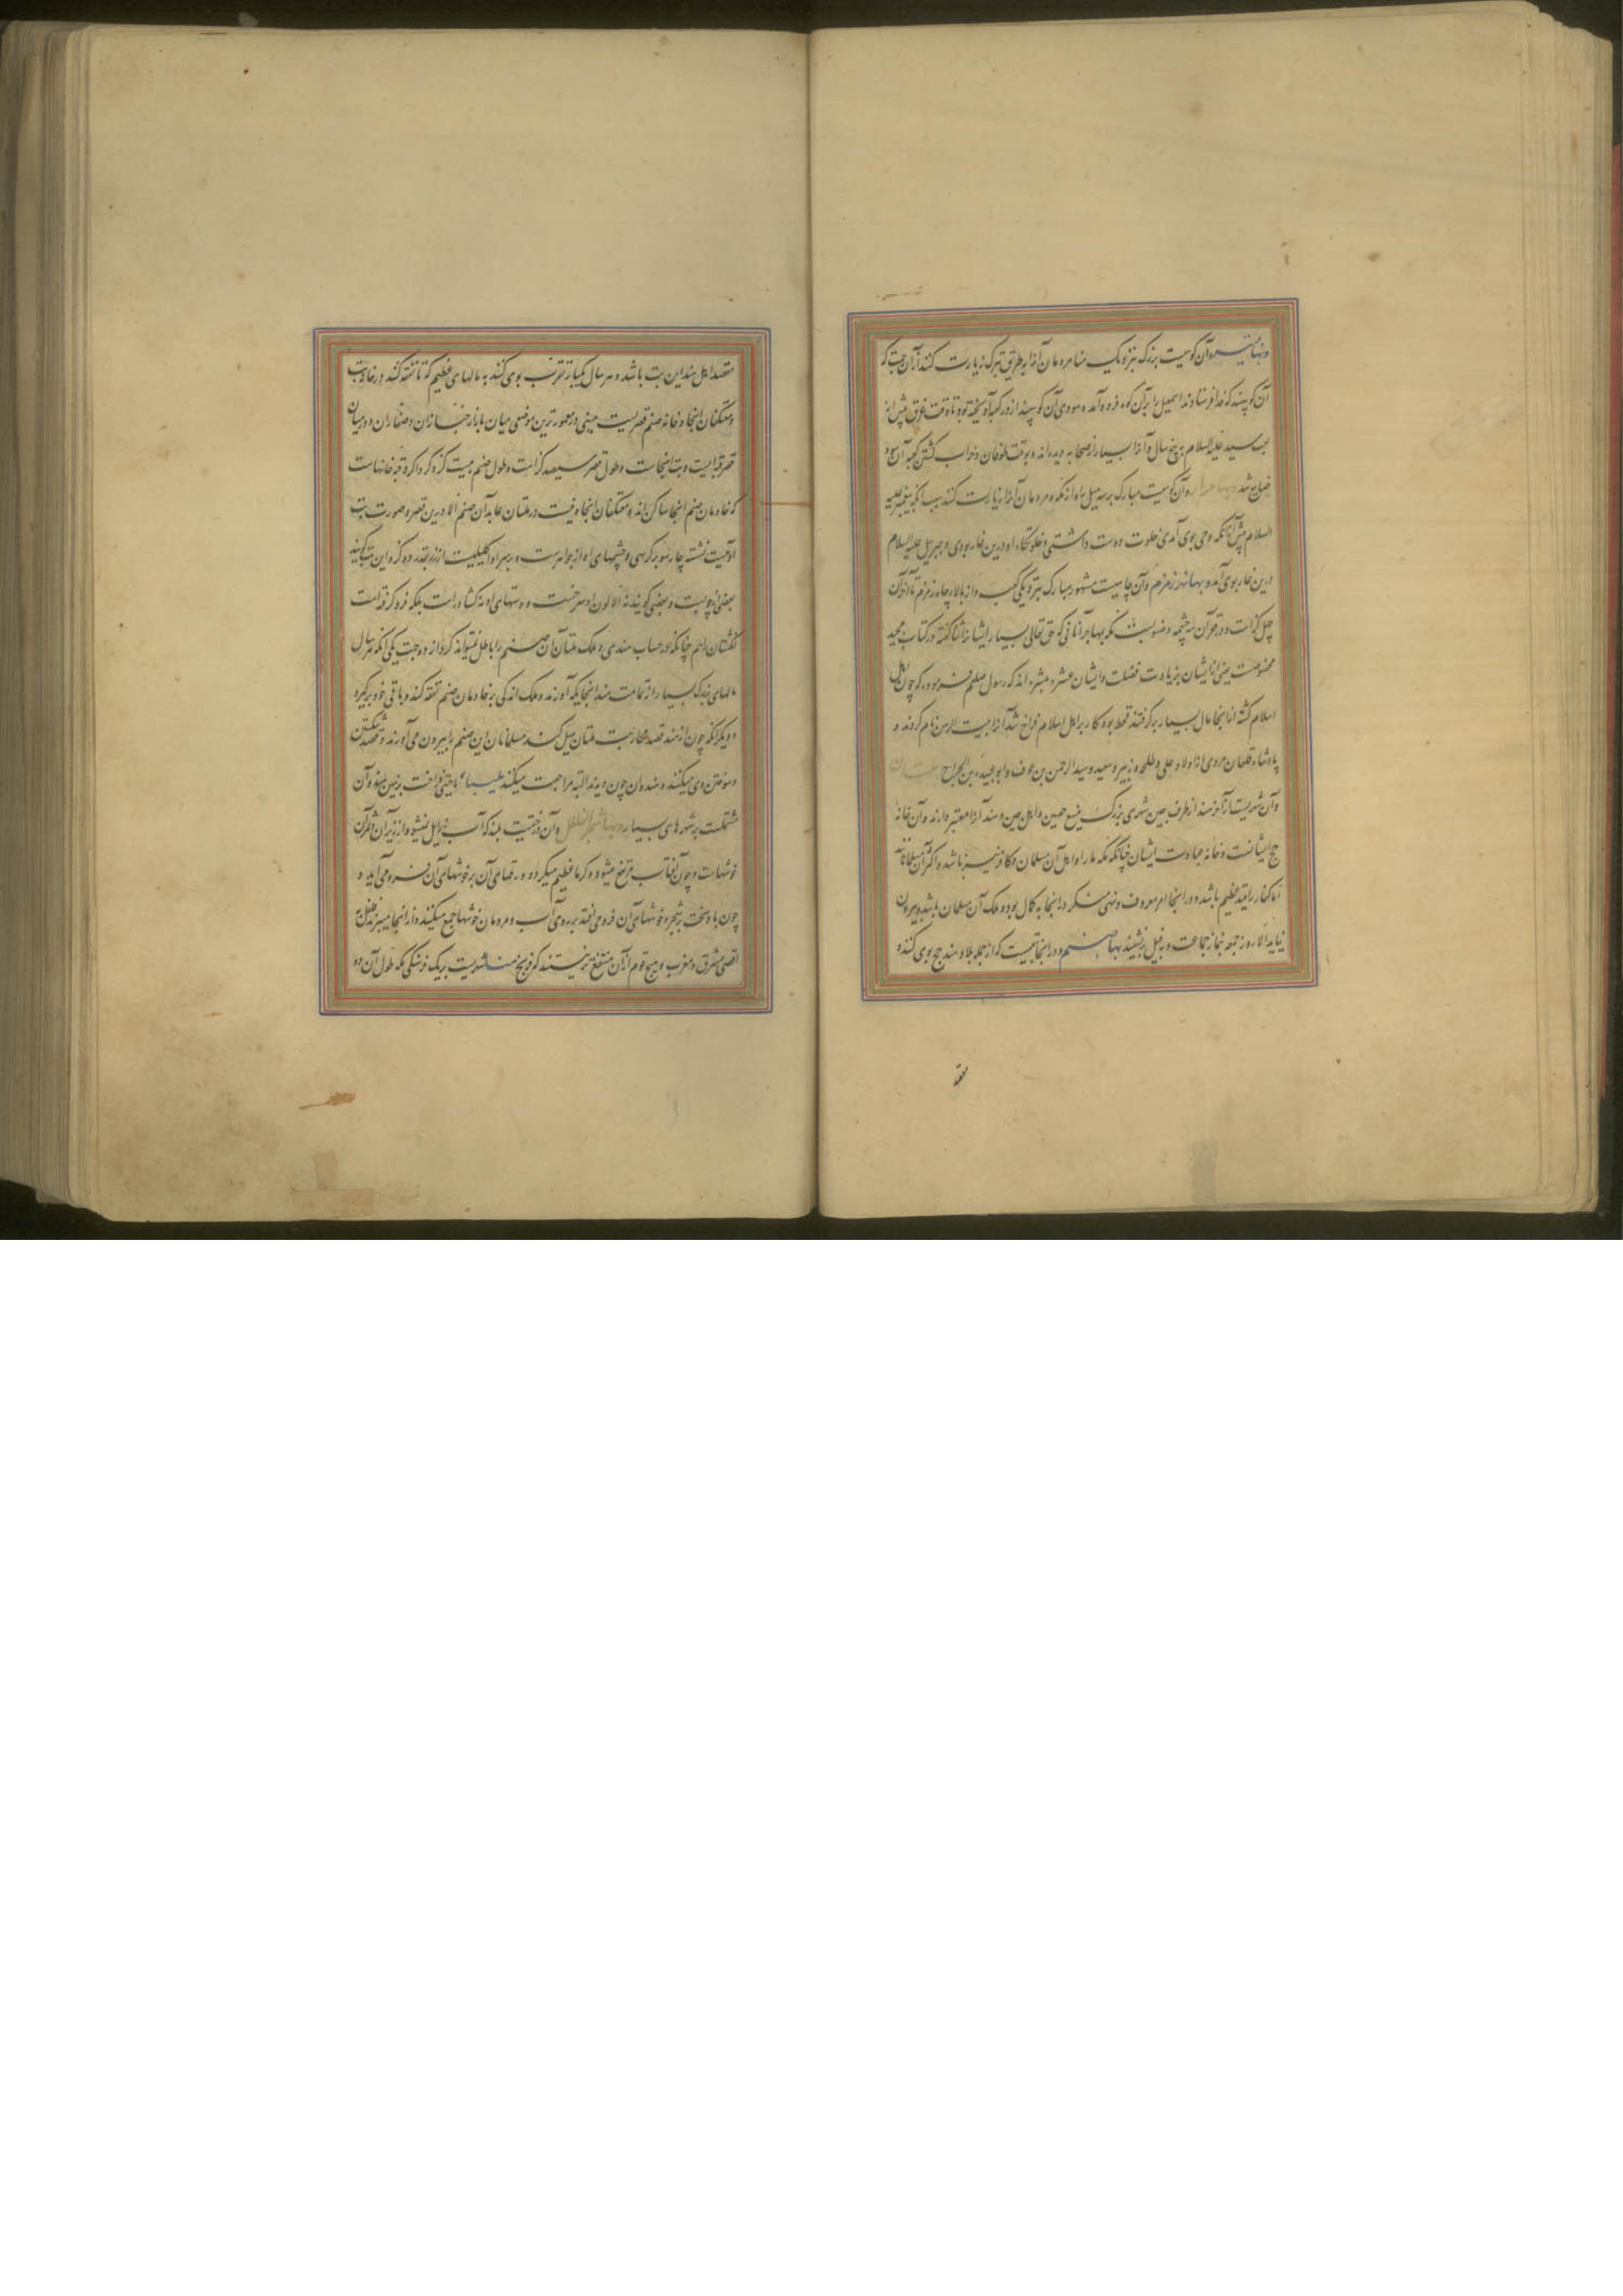 وبها ثبیر وآن کوهیست بزرگ بنزدیک منا مردمان آنرا بطریق تبرک زیارت کنند از آن جهت که
آن کوسپند که فدا فرستادند اسمعیل را برآن کوه فروآمده و سروی آن کوسپند از در کعبه آویخته بود تا وقت غرق پیش از
بعث سید علیه السلام به پنج سال وآنرا بسیار از صحابه دیده‌اند و بوقت طوفان وخراب گشتن کعبه آن سرو
ضایع شد وبها حرا وآن کوهیست مبارک بر سه میل راه از مکه ومردمان آنرا زیارت کنند بسبب آنکه پیغمبر علیه
السلام پیش از آنکه وحی بوی آمدی خلوت دوست داشتی وخلوتگاه او درین غار بودی وجبریل علیه السلام
درین غار بوی آمد وبها بئر زمزم وآن چاهیست مشهور مبارک بنزدیکی کعبه واز بالای چاه زمزم تا آخر آن
چهل گز است ودر قعر آن سه چشمه و منسوبست بمکه مهاجر آنانی که حق تعالی بسیار ایشانرا ثنا گفته در کتاب مجید
مخصوصست بعضی از ایشان بزیادت فضلت وایشان عشره مبشره اند که رسول صلعم فرموده که چون اهل
اسلام گشته از اینجا مال بسیار برگرفتند قحط بود وکار بر اهل اسلام فراخ شد آنرا بیت الرهن نام کردند و
پادشاه وی از اولاد علی وطلحه وزبیر وسعید وعبدالرحمن بن عوف وابو عبیده بن الجراح ملتان
وآن شهریست از آخر هند از طرف چین شهری بزرگ منیع حصین واهل چین وهند آنرا معتبر دارند وآن خانه
حج ایشانست وخانه عبادت ایشان چنانکه مکه ما را واهل آن مسلمان وکافر نیز باشد واکثر آن مسلمانانند
اما کفار را قید عظیم باشد ودر اینجا امر معروف ونهی منکر در اینجا به کمال بود وملک آن مسلمان باشد وبیرون
نیاید الا روز جمعه بنماز جماعت وبر فیل نشیند بها صنم ودر اینجا بتیست که از جمله بلاد هند حج بوی کنند و
مقصد
مقصد اهل هند این بت باشد وهر سال یکبار تقرب بوی کنند به مالهای عظیم که تا نفقه کنند در خانه بت
ومعتکفان اینجا وخانه صنم قصریست مبنی در معمورترین موضعی میان بازار خبازان وصفاران ودر میان
قصر قبه ایست وبت اینجاست وطول قصر سیصد گز است وطول صنم بیست گز وگرداگرد قبه خانهاست
که خادمان صنم اینجا ساکن اند ومعتکفان اینجا ونیست در ملتان عابد آن صنم الا درین قصر وصورت بت
آدمیست نشسته چارسو بر کرسی وچشمهای او از جواهرست وبر سر او اکلیلیست از زر بقدر ده گز واین بت گویند
بعضی از چوبست وبعضی گویند نه الا لون او سرخست ودستهای او نه گشاد است بلکه فرو گرفته است
انگشتان را هم چنانکه در حساب هندی وملک ملتان آن صنم را باطل نمیتواند کرد از دو جهت یکی آنکه هر سال
مالهای بسیار از تمامت هند اینجایگه آورند وملک اندکی بر خادمان صنم نفقه کند وباقی خود برگیرد
ودیگر آنکه چون از هند قصد محاربت ملتان میل کنند مسلمانان این صنم را بیرون می آورند وقصد شکستن
وسوختن وی میکنند وهندوان چون دیدند البته مراجعت میکنند ملیبار ناحیتی فراخست بزمین هند وآن
مشتملست بر شهرهای بسیار وبها شجر الفلفل وآن درختیست بلند که آب زایل نشود از زیر آن وثمر آن
خوشهاست وچون آفتاب مرتفع میشود وگرما عظیم میگردد ورقهای آن بر خوشهای آن فرو می آید و
چون باد سخت بر شجره وخوشهای آن فرو می افتد بر روی آب ومردمان خوشها جمع میکنند واز اینجا میبرند فلفل به
اقصی مشرق ومغرب وهیچ قوم از آن منتفع تر نیستند که فرنج منا شهریست بر یک فرسنگی مکه طول آن دو